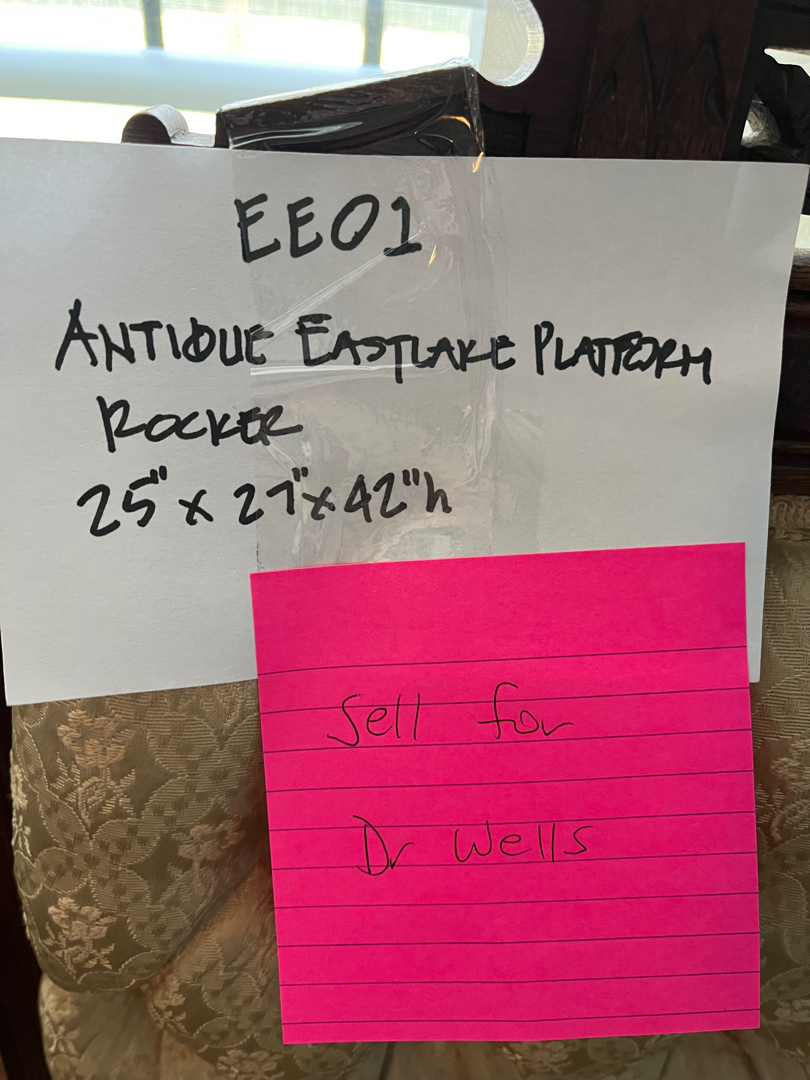 EE01
ANTIQUE EASTLAKE PLATFORM
ROCKER
25" x 27" x 42"h
Sell for
Dr Wells